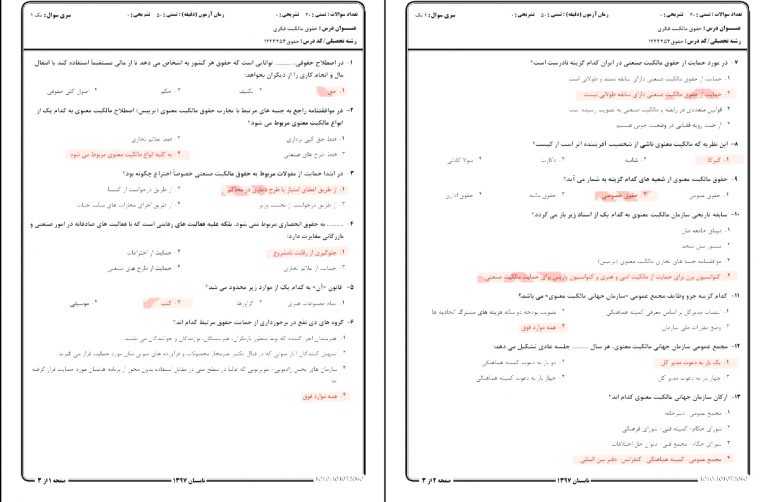 زمان آزمون (دقیقه) : تستی : ۵۰ تشریحی : ۰
تعداد سوالات : تستی : ۳۰ تشریحی : ۰
سری سوال : یک ۱
عنـــوان درس : حقوق مالکیت فکری
رشته تحصیلی/کد درس : حقوق ۱۲۲۳۲۵۴
۱- در اصطلاح حقوقی، .......... توانایی است که حقوق هر کشور به اشخاص می دهد تا از مالی مستقیماً استفاده کند یا انتقال
مال و انجام کاری را از دیگران بخواهد:
۱. حق ۲. تکلیف ۳. حکم ۴. اصول کلی حقوقی
۲- در موافقتنامه راجع به جنبه های مرتبط با تجارت حقوق مالکیت معنوی (تریپس) اصطلاح مالکیت معنوی به کدام یک از
انواع مالکیت معنوی مربوط می شود؟
۱. فقط حق کپی برداری ۲. فقط علائم تجاری
۳. فقط طرح های صنعتی ۴. به کلیه انواع مالکیت معنوی مربوط می شود
۳- در ابتدا حمایت از مقولات مربوط به حقوق مالکیت صنعتی خصوصاً اختراع چگونه بود؟
۱. از طریق اعطای امتیاز یا طرح دعاوی در محاکم ۲. از طریق درخواست از کلیسا
۳. از طریق درخواست از نخست وزیر ۴. از طریق اجرای مجازات های سالب حیات
۴- .......... به حقوق انحصاری مربوط نمی شود، بلکه علیه فعالیت های رقابتی است که با فعالیت های صادقانه در امور صنعتی و
بازرگانی مغایرت دارد:
۱. جلوگیری از رقابت نامشروع ۲. حمایت از اختراعات
۳. حمایت از علائم تجاری ۴. حمایت از طرح های صنعتی
۵- قانون «آن» به کدام یک از موارد زیر محدود می شد؟
۱. تمام مصنوعات هنری ۲. گراورها ۳. کتب ۴. موسیقی
۶- گروه های ذی نفع در برخورداری از حمایت حقوق مرتبط کدام اند؟
۱. هنرمندان اجرا کننده که نوعا منظور بازیگران، هنرپیشگان، نوازندگان و خوانندگان می باشند.
سازمان های پخش رادیویی- تلویزیونی که غالبا در سطح ملی در مقابل استفاده بدون مجوز از برنامه هایشان مورد حمایت قرار گرفته
اند
۴. همه موارد فوق
تابستان ۱۳۹۷
صفحه ۱ از ۳
1010/101072060
تعداد سوالات : تستی : ۳۰ تشریحی : ۰
زمان آزمون (دقیقه) : تستی : ۵۰ تشریحی : ۰
سری سوال : ۱ یک
عنـــوان درس : حقوق مالکیت فکری
رشته تحصیلی/کد درس : حقوق ۱۲۲۳۲۵۴
۷- در مورد حمایت از حقوق مالکیت صنعتی در ایران کدام گزینه نادرست است؟
۱. حمایت از حقوق مالکیت صنعتی دارای سابقه ممتد و طولانی است
۲. حمایت از حقوق مالکیت صنعتی دارای سابقه طولانی نیست
۳. قوانین متعددی در رابطه با مالکیت صنعتی به تصویب رسیده است
۴. از حیث رویه قضایی در وضعیت خوبی هستیم
۸- این نظریه که مالکیت معنوی ناشی از شخصیت آفریننده اثر است از کیست؟
۱. گیرکا ۲. شاتیه ۳. دکارت ۴. پیولا کاذلی
۹- حقوق مالکیت معنوی از شعبه های کدام گزینه به شمار می آید؟
۱. حقوق عمومی ۲. حقوق خصوصی ۳. حقوق مالیه ۴. حقوق اداری
۱۰- سابقه تاریخی سازمان مالکیت معنوی به کدام یک از اسناد زیر باز می گردد؟
۱. میثاق جامعه ملل
۲. منشور ملل متحد
۳. موافقتنامه جنبه های تجاری مالکیت معنوی (تریپس)
۴. کنوانسیون برن برای حمایت از مالکیت ادبی و هنری و کنوانسیون پاریس برای حمایت مالکیت صنعتی
۱۱- کدام گزینه جزو وظایف مجمع عمومی «سازمان جهانی مالکیت معنوی» می باشد؟
۱. انتصاب مدیرکل بر اساس معرفی کمیته هماهنگی ۲. تصویب بودجه دو سالانه هزینه های مشترک اتحادیه ها
۳. وضع مقررات مالی سازمان ۴. همه موارد فوق
۱۲- مجمع عمومی سازمان جهانی مالکیت معنوی، هر سال .......... جلسه عادی تشکیل می دهد:
۱. یک بار به دعوت مدیر کل ۲. دو بار به دعوت کمیته هماهنگی
۳. چهار بار به دعوت مدیر کل ۴. چهار بار به دعوت کمیته هماهنگی
۱۳- ارکان سازمان جهانی مالکیت معنوی کدام اند؟
۱. مجمع عمومی- دبیرخانه
۲. شورای حکام- کمیته فنی- شورای فرهنگی
۳. شورای حکام- مجمع فنی- دیوان حل اختلافات
۴. مجمع عمومی- کمیته هماهنگی- کنفرانس- دفتر بین المللی
تابستان ۱۳۹۷
صفحه ۲ از ۳
1010/101072060